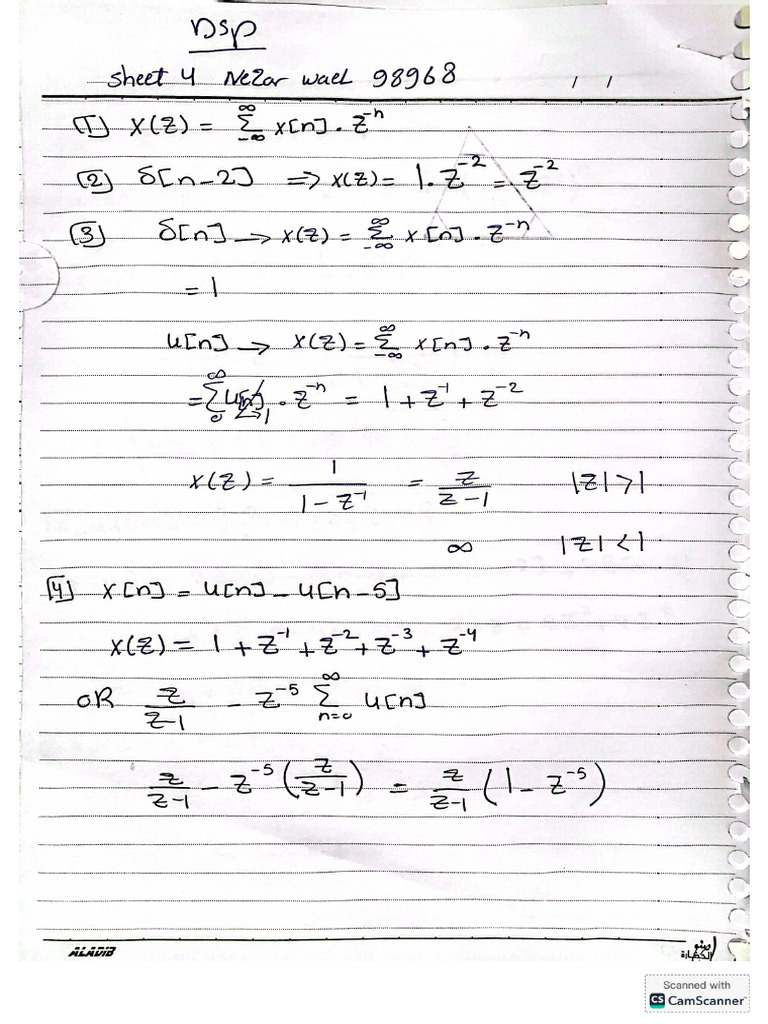 DSP
sheet 4 Nezar wael 98968 / /
[1] X(Z) = ∞ Σ -∞ x[n] . Z^-n
[2] δ[n-2] => X(Z) = 1 . Z^-2 = Z^-2
[3] δ[n] → X(Z) = ∞ Σ -∞ x[n] . Z^-n
= 1
u[n] → X(Z) = ∞ Σ -∞ x[n] . Z^-n
= ∞ Σ 0 u[n] →1 . Z^-n = 1 + Z^-1 + Z^-2
X(Z) = 1 / (1 - Z^-1) = Z / (Z-1) |Z| > 1
∞ |Z| < 1
[4] x[n] = u[n] - u[n-5]
X(Z) = 1 + Z^-1 + Z^-2 + Z^-3 + Z^-4
OR Z / (Z-1) - Z^-5 ∞ Σ n=0 u[n]
Z / (Z-1) - Z^-5 (Z / (Z-1)) = Z / (Z-1) (1 - Z^-5)
ALADIB
Scanned with
CS CamScanner